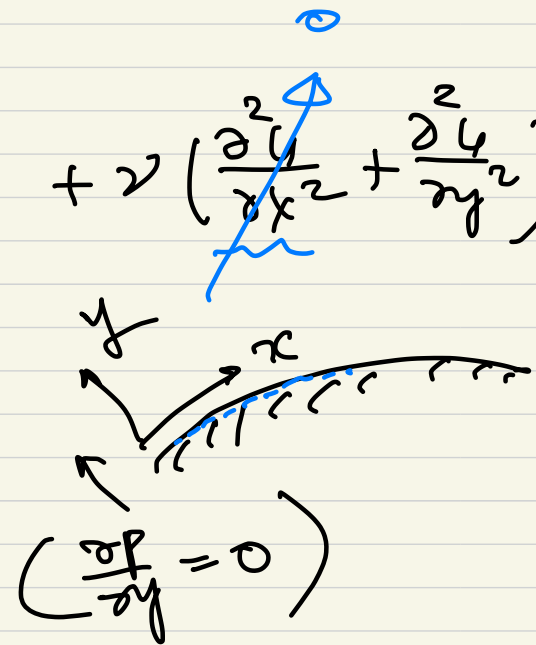 0
+ ν ( ∂²u/∂x² + ∂²u/∂y² )
y
x
( ∂P/∂y = 0 )